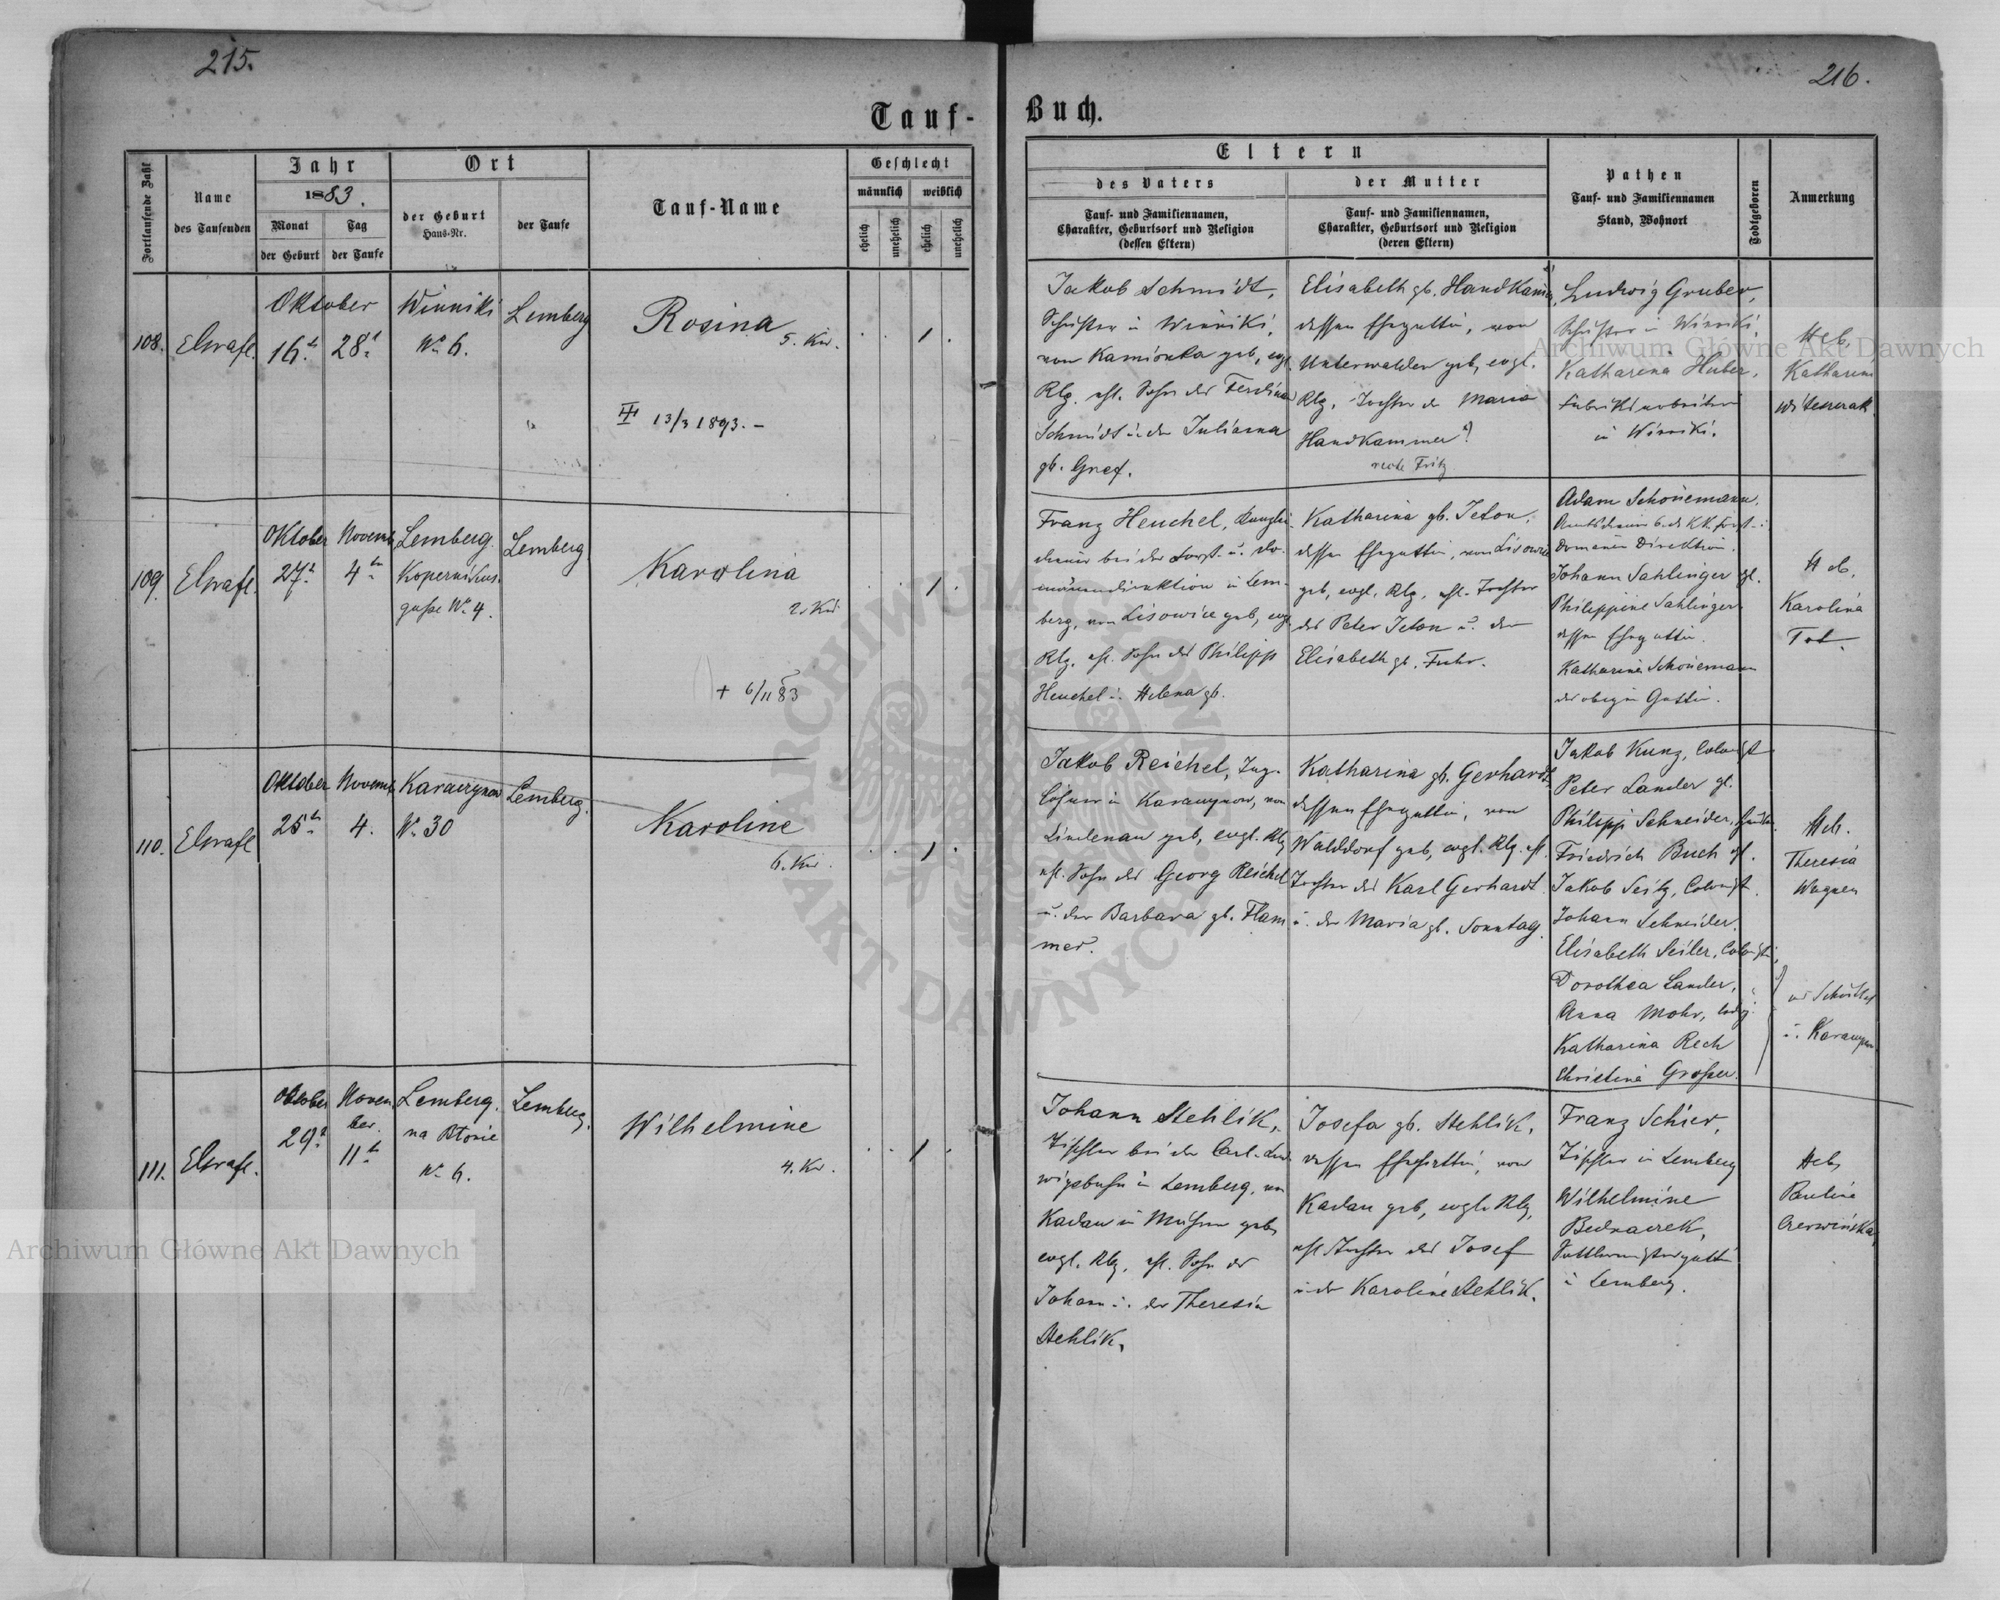 215.
216.
Tauf-
Buch.
Fortlaufende Zahl
Name
des Taufenden
Jahr
1883.
Monat
der Geburt
Tag
der Taufe
Ort
der Geburt
Haus-Nr.
der Taufe
Tauf-Name
Geschlecht
männlich
weiblich
ehelich
unehelich
ehelich
unehelich
Eltern
des Vaters
Tauf- und Familiennamen,
Charakter, Geburtsort und Religion
(dessen Eltern)
der Mutter
Tauf- und Familiennamen,
Charakter, Geburtsort und Religion
(deren Eltern)
Pathen
Tauf- und Familiennamen
Stand, Wohnort
Todtgeboren
Anmerkung
108.
Oktober
16
28
Winniki
No 6.
Lemberg
Rosina
5. Kd.
13/3 1893. –
Jakob Schmidt,
in Winniki,
von Kamionka geb, evgl.
Rlg. ehl. Sohn des Ferdinand
Schmidt u. der Julianna
gb. Gref.
Elisabeth gb. Handkammer,
dessen Ehegattin, von
Unterwalden geb, evgl.
Rlg. Tochter der Maria
Handkammer
recte Fritz
Ludwig Gruber,
in Winniki,
Katharina Huber,
Fabriksarbeiterin
in Winniki.
Heb.
Katharina
109.
Oktober
27
Novemb
4
Lemberg.
Kopernikus-
gasse No 4.
Lemberg
Karolina
2. Kd.
+ 6/11 83
Franz Heuchel, Kanzlei-
diener bei der Forst- u. Do-
mänendirektion in Lem-
berg, von Lisowice geb, evgl.
Rlg. ehl. Sohn des Philipp
Heuchel u. Helena gb.
Katharina gb. Jeton,
dessen Ehegattin, von Lisowice
geb, evgl. Rlg. ehl. Tochter
des Peter Jeton u. der
Elisabeth gb. Fuhr.
Adam Schönemann,
Amtsdiener b. d. K.K. Forst- u.
Domänen Direktion.
Johann Sahlinger
Philippine Sahlinger
dessen Ehegattin.
Katharina Schönemann
des obigen Gattin.
Heb.
Karolina
110.
Oktober
25
Novemb
4.
No 30
Lemberg.
Karoline
6. Kd.
Jakob Reichel, Tag-
löhner in Karaczynow, von
Lindenau geb, evgl. Rlg
ehl. Sohn des Georg Reichel
u. der Barbara gb. Flam
mer.
Katharina gb. Gerhardt
dessen Ehegattin, von
Walddorf geb, evgl. Rlg. ehl.
Tochter des Karl Gerhardt
u. der Maria gb. Sonntag.
Jakob Kunz, Colonist
Peter Lander gl.
Philipp Schneider,
Friedrich Buch gl.
Jakob Seitz, Colonist.
Johann Schneider.
Elisabeth Seiler,
Dorothea Lander,
Anna Mohr, ledig
Katharina Rech
Christina Grosser.
Heb.
Theresia
Wagner
111.
Oktober
29
Novem
ber.
11
Lemberg.
na Błonie
No 6.
Lemberg.
Wilhelmine
4. Kd.
Johann Stehlik,
Tischler bei der Carl-Lud
wigsbahn in Lemberg, von
Kadau in Mähren geb,
evgl. Rlg. ehl. Sohn des
Johann u. der Theresia
Stehlik.
Josefa gb. Stehlik,
dessen Ehegattin, von
Kadau geb, evgl. Rlg,
ehl. Tochter des Josef
u. der Karoline Stehlik.
Franz Schier,
Tischler in Lemberg
Wilhelmine
Bednarzek,
Sattlermeistergattin
in Lemberg.
Heb.
Pauline
Czerwinska
Archiwum Główne Akt Dawnych
Archiwum Główne Akt Dawnych
ARCHIWUM GŁÓWNE AKT DAWNYCH